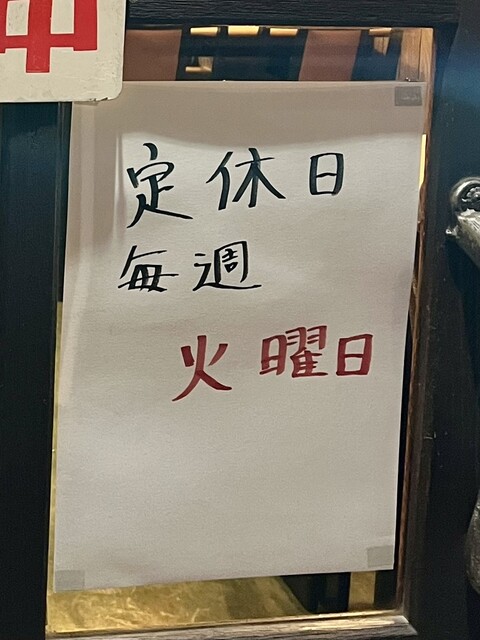 中
定休日
毎週
火曜日